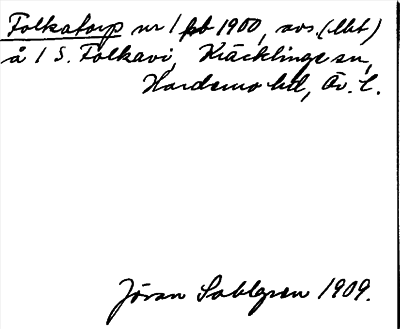 Folkatorp nr 1 jb 1900, avs. (lbt)
å 1 S. Folkavi, Kräcklinge sn,
Hardemo hd, Ör. l.
Jöran Sahlgren 1909.